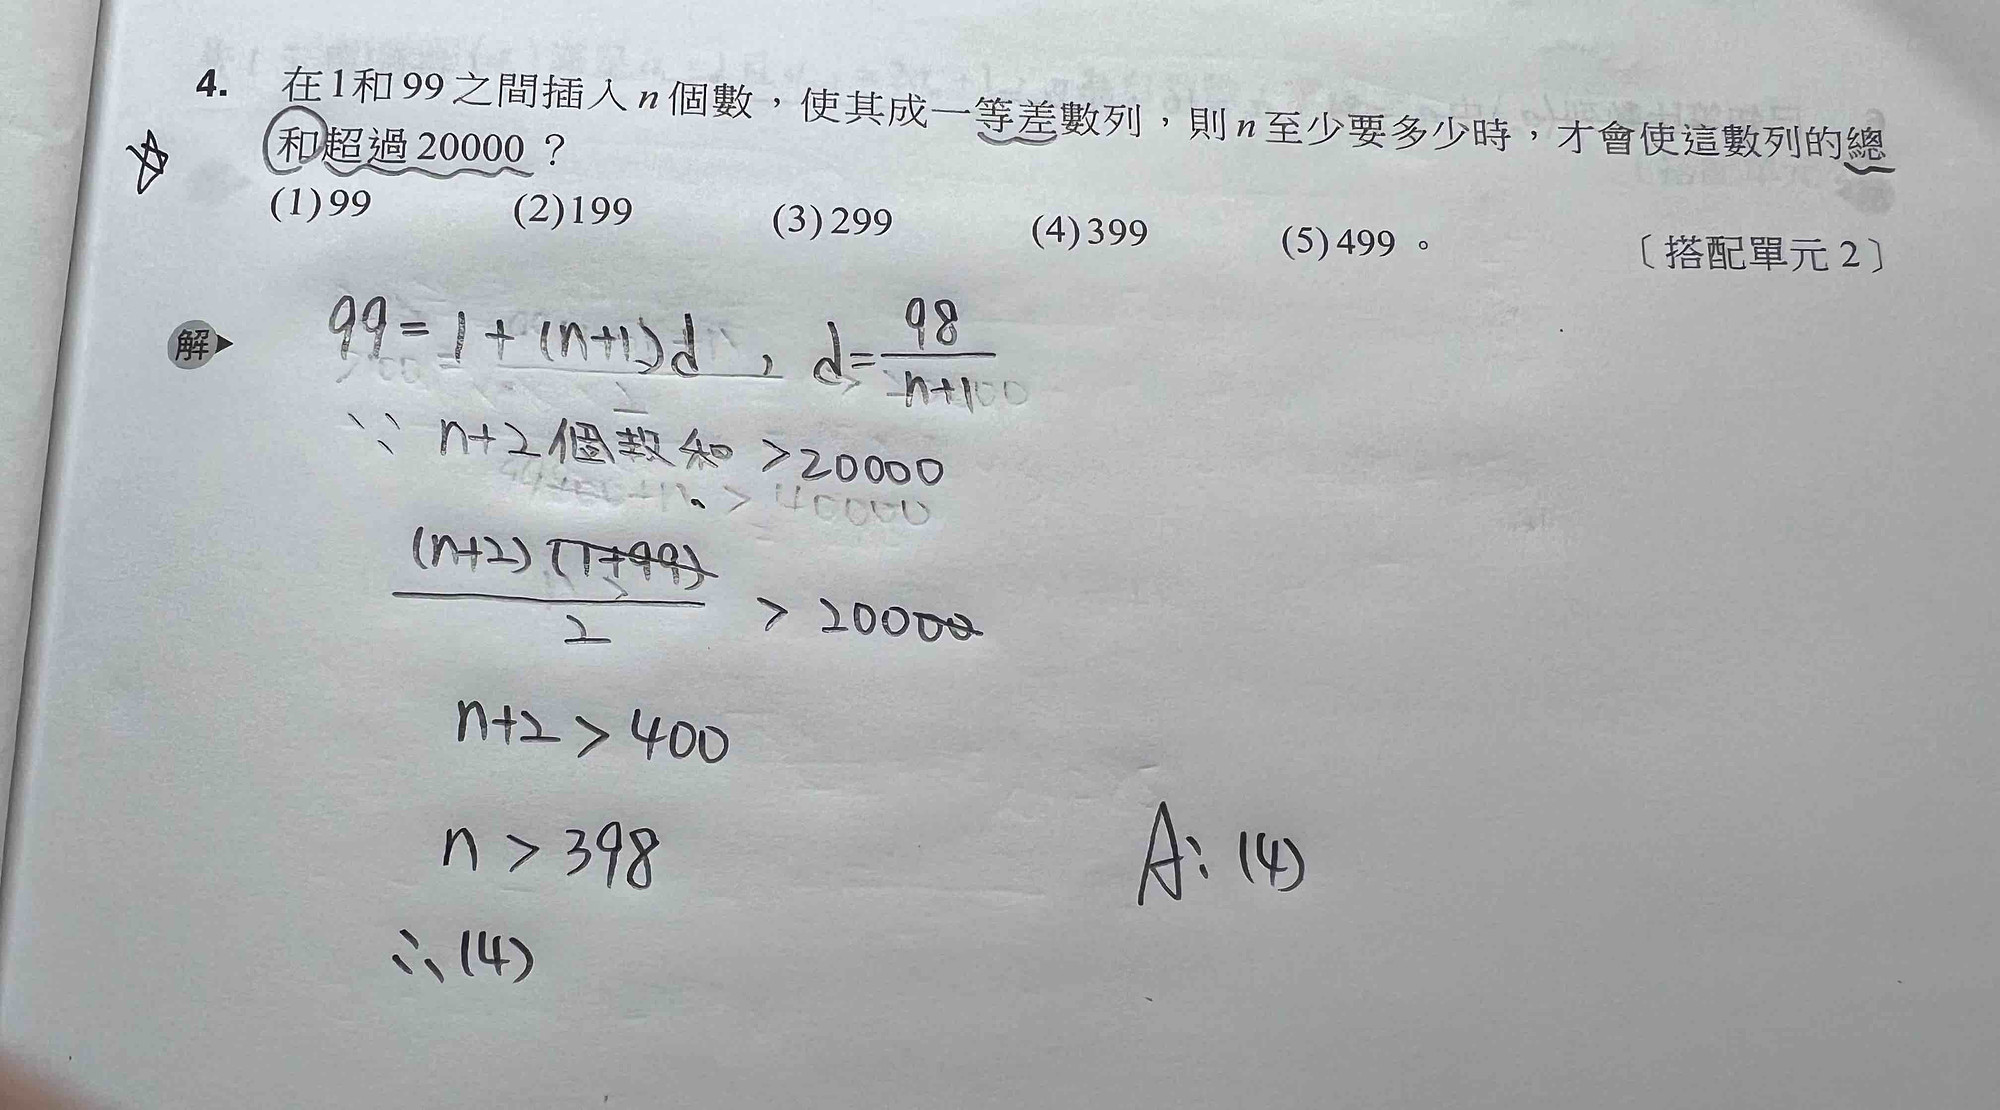 4. 在1和99之間插入n個數，使其成一等差數列，則n至少要多少時，才會使這數列的總
和超過20000？
(1)99 (2)199 (3)299 (4)399 (5)499。 〔搭配單元2〕
解 99=1+(n+1)d, d=98/(n+1)
∵ n+2個数和 >20000
(n+2)(1+99)/2 > 20000
n+2 > 400
n > 398
A: (4)
∴ (4)